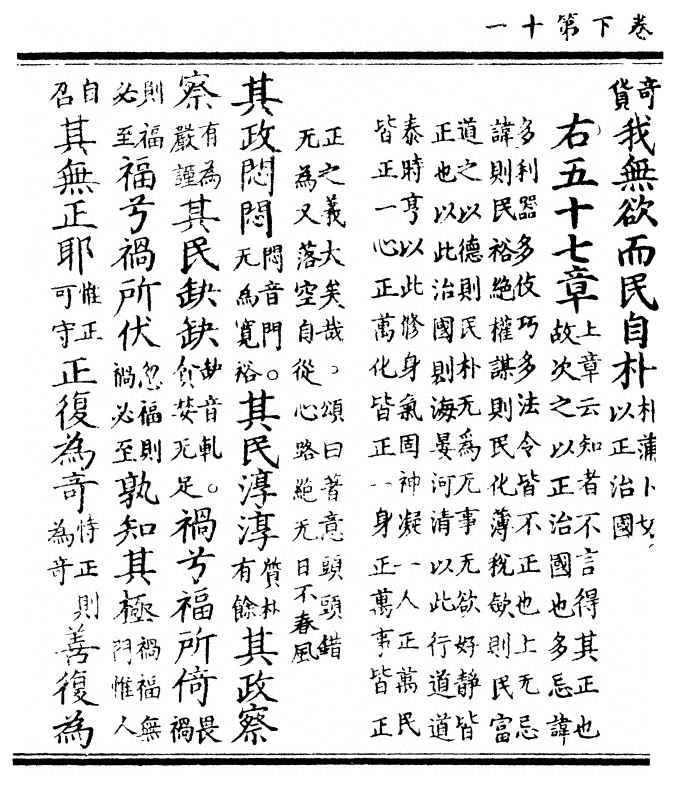 卷下第十一
奇貨我無欲而民自朴朴蒲卜切。以正治國
右五十七章上章云知者不言得其正也故次之以正治國也多忌諱
多利器多伎巧多法令皆不正也上无忌
諱則民裕絶權謀則民化薄稅歛則民富
道之以德則民朴无為无事无欲好静皆
正也以此治國則海晏河清以此行道道
泰時亨以此修身氣固神凝一人正萬民
皆正一心正萬化皆正一身正萬事皆正
正之義大矣哉。頌曰著意頭頭錯
无為又落空自從心路絶无日不春風
其政悶悶悶音門。无為寛裕其民淳淳質朴有餘其政察
察有為嚴謹其民缺缺缺音軋。貪婪无足禍兮福所倚畏禍
則福必至福兮禍所伏忽福則禍必至孰知其極禍福無門惟人
自召其無正耶惟正可守正復為奇恃正則為奇善復為